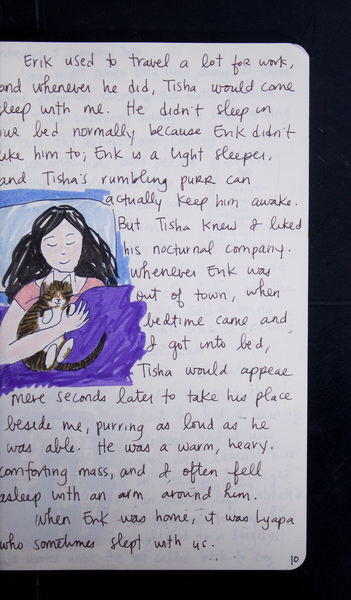 Erik used to travel a lot for work,
and whenever he did, Tisha would come
sleep with me. He didn't sleep in
our bed normally because Erik didn't
like him to; Erik is a light sleeper,
and Tisha's rumbling purr can
actually keep him awake.
But Tisha knew I liked
his nocturnal company.
Whenever Erik was
out of town, when
bedtime came and
I got into bed,
Tisha would appear
mere seconds later to take his place
beside me, purring as loud as he
was able. He was a warm, heavy.
comforting mass, and I often fell
asleep with an arm around him.
When Erik was home, it was Lyapa
who sometimes slept with us.
10